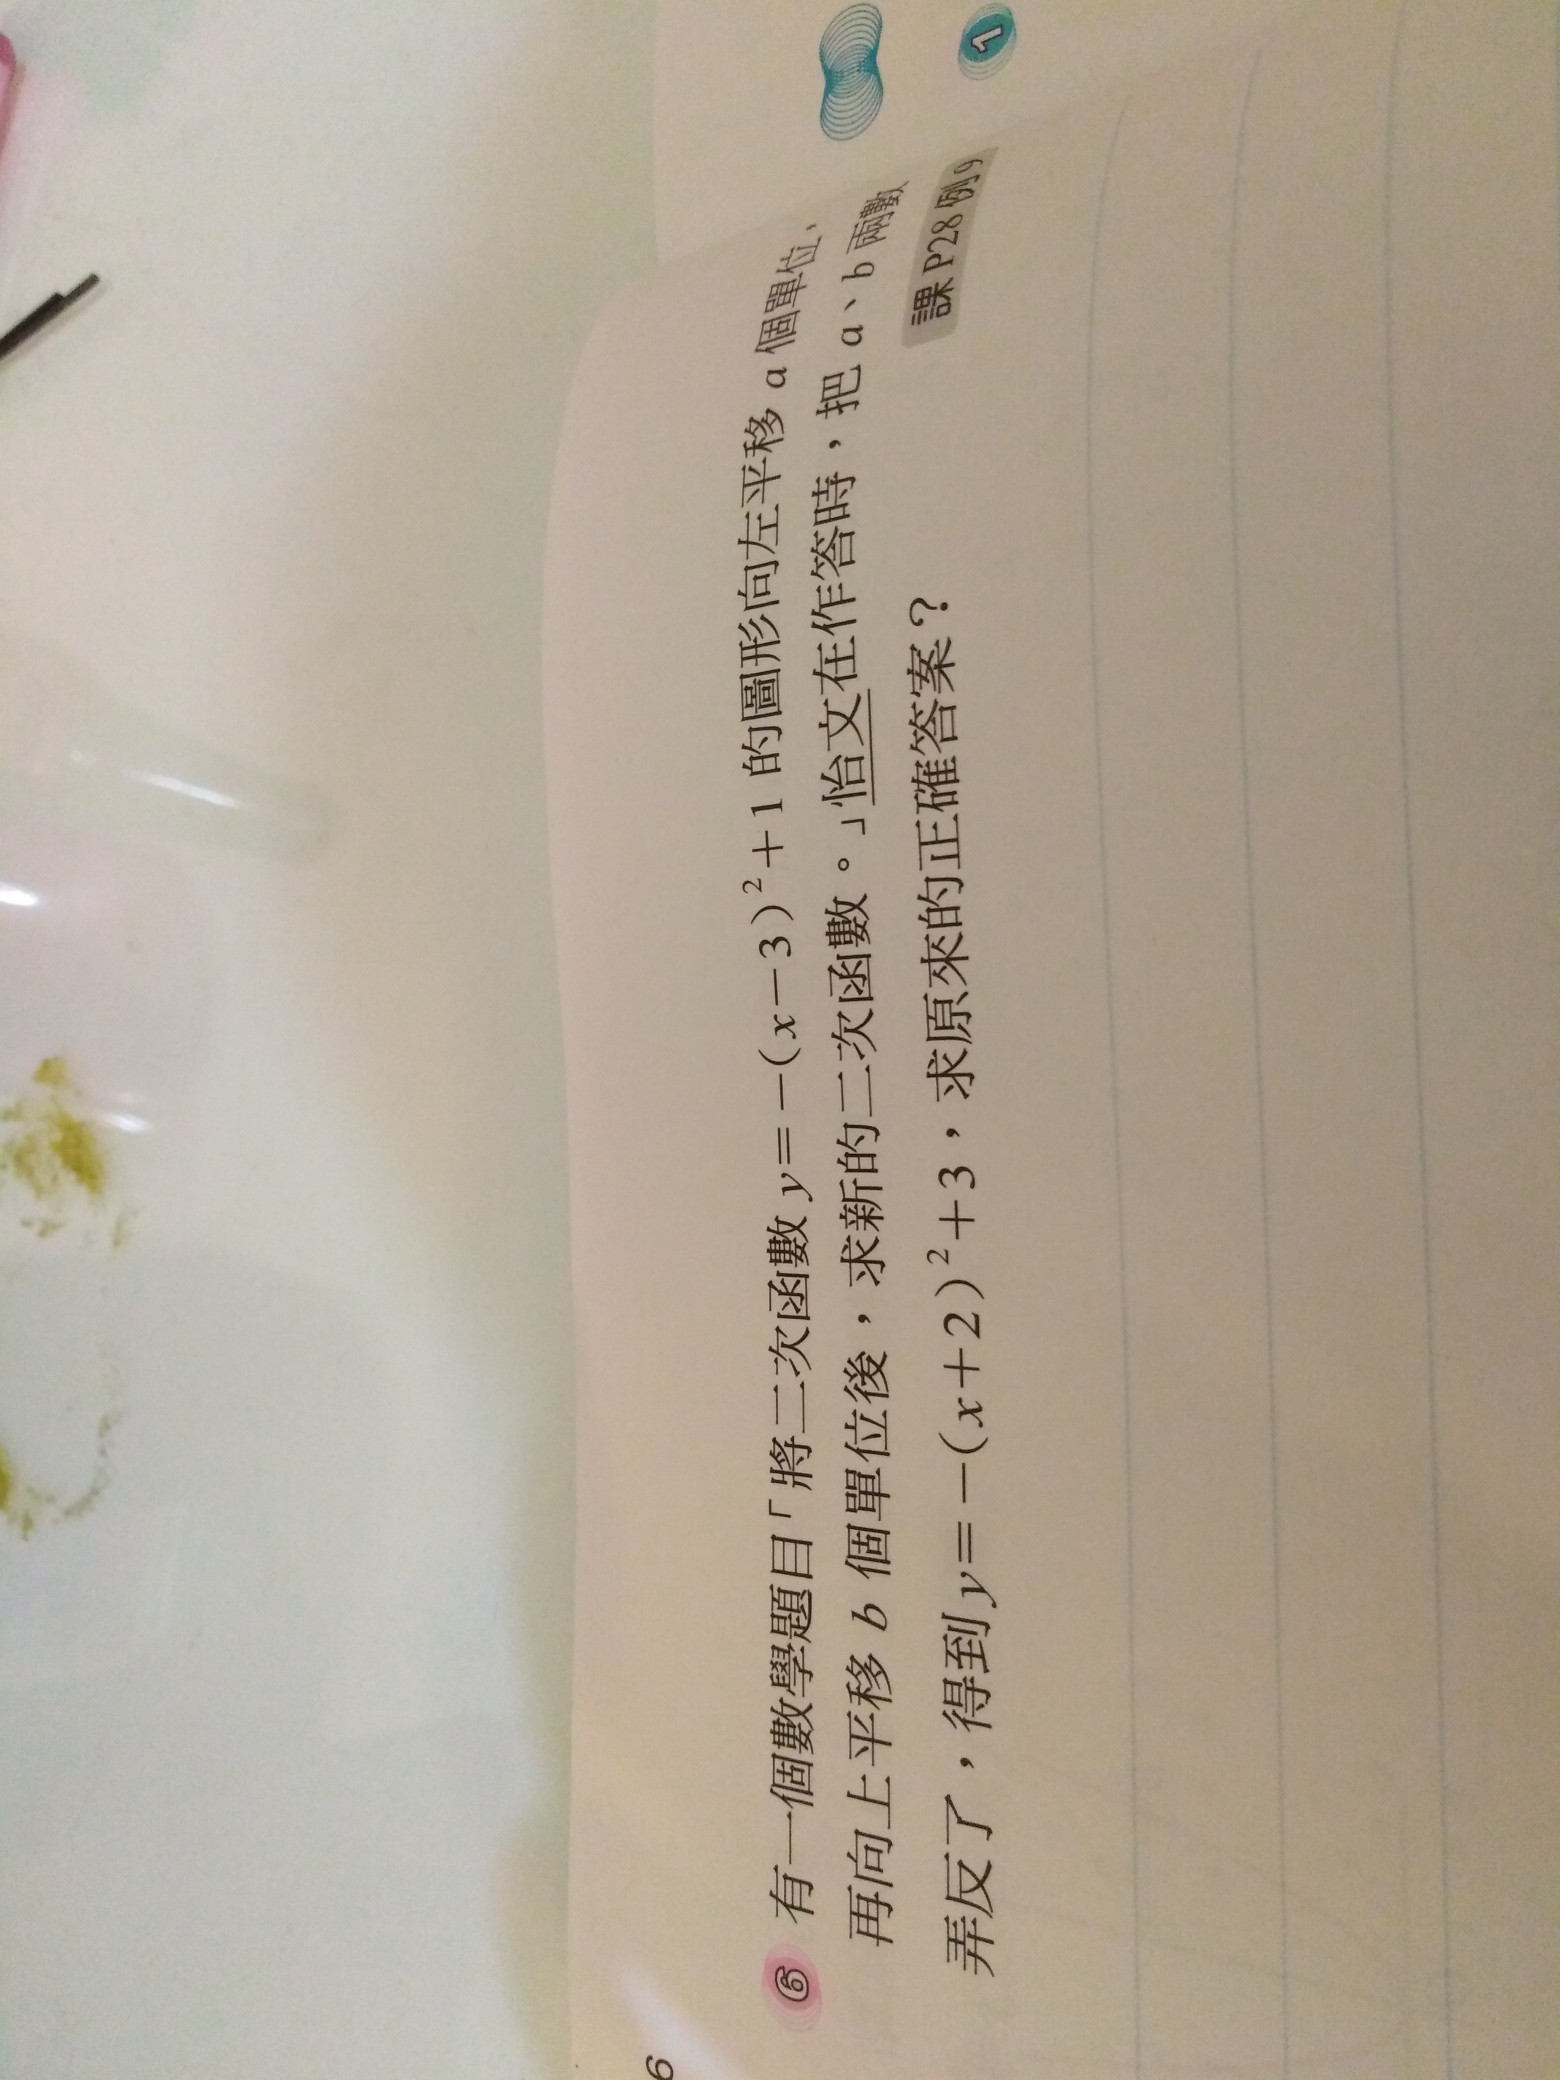 6
⑥ 有一個數學題目「將二次函數 y=-(x-3)²+1 的圖形向左平移 a 個單位，
再向上平移 b 個單位後，求新的二次函數。」怡文在作答時，把 a、b 兩數
弄反了，得到 y=-(x+2)²+3，求原來的正確答案？
課 P28 例 9
1